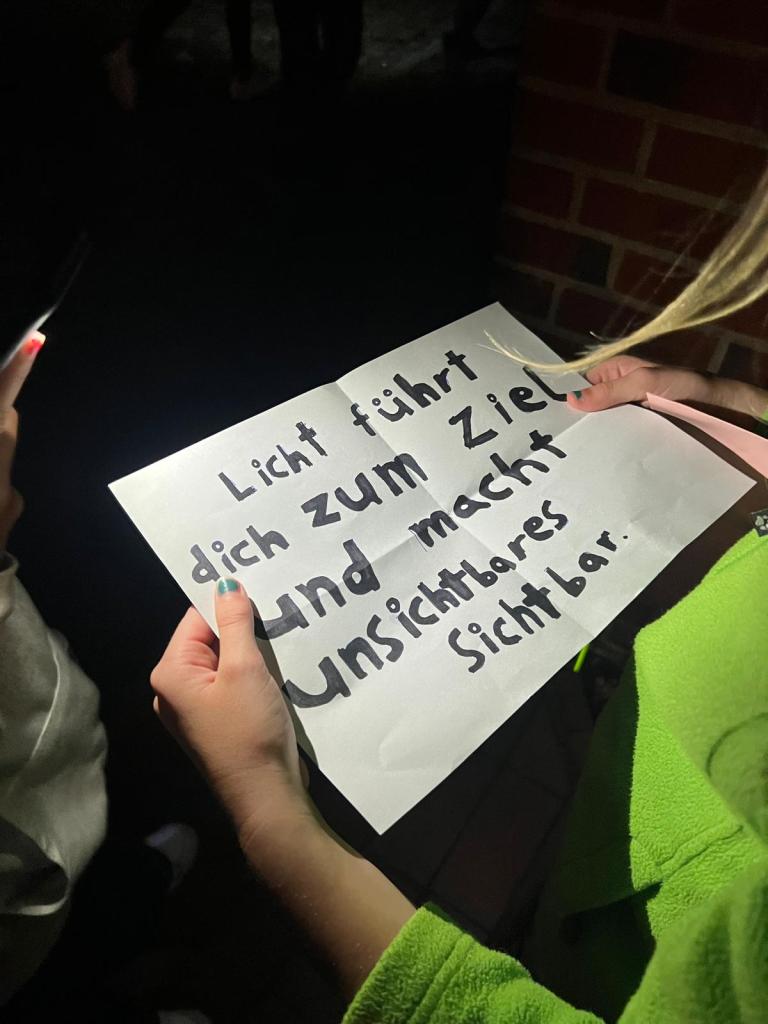 Licht führt
dich zum Ziel
und macht
unsichtbares
Sichtbar.